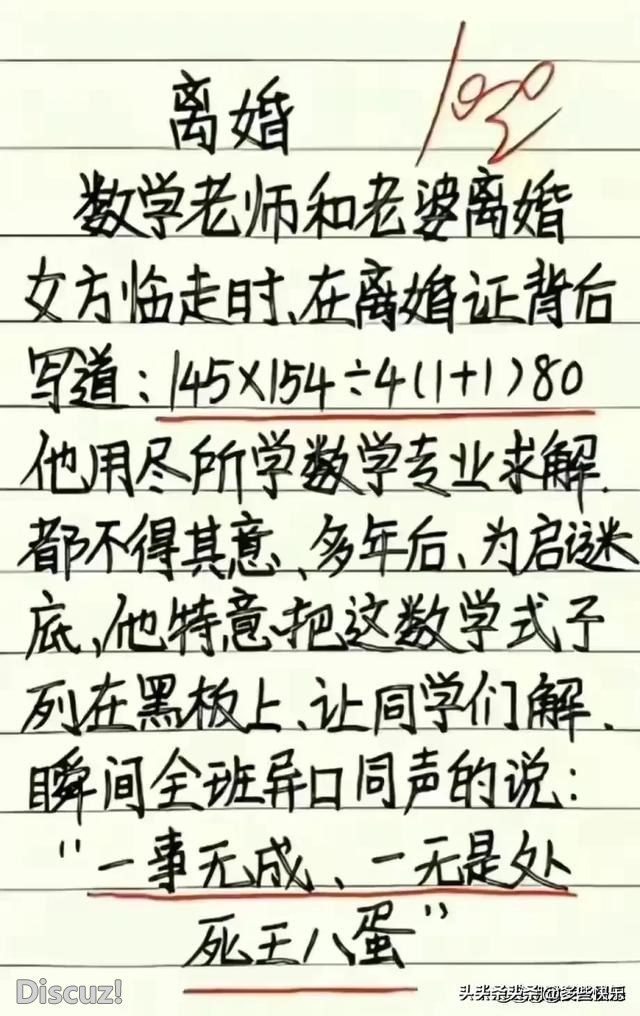 离婚
100
数学老师和老婆离婚
女方临走时、在离婚证背后
写道:145×154÷4(1+1)80
他用尽所学数学专业求解.
都不得其意、多年后、为启谜
底、他特意把这数学式子
列在黑板上、让同学们解.
瞬间全班异口同声的说:
"一事无成、一无是处
死王八蛋"
Discuz!